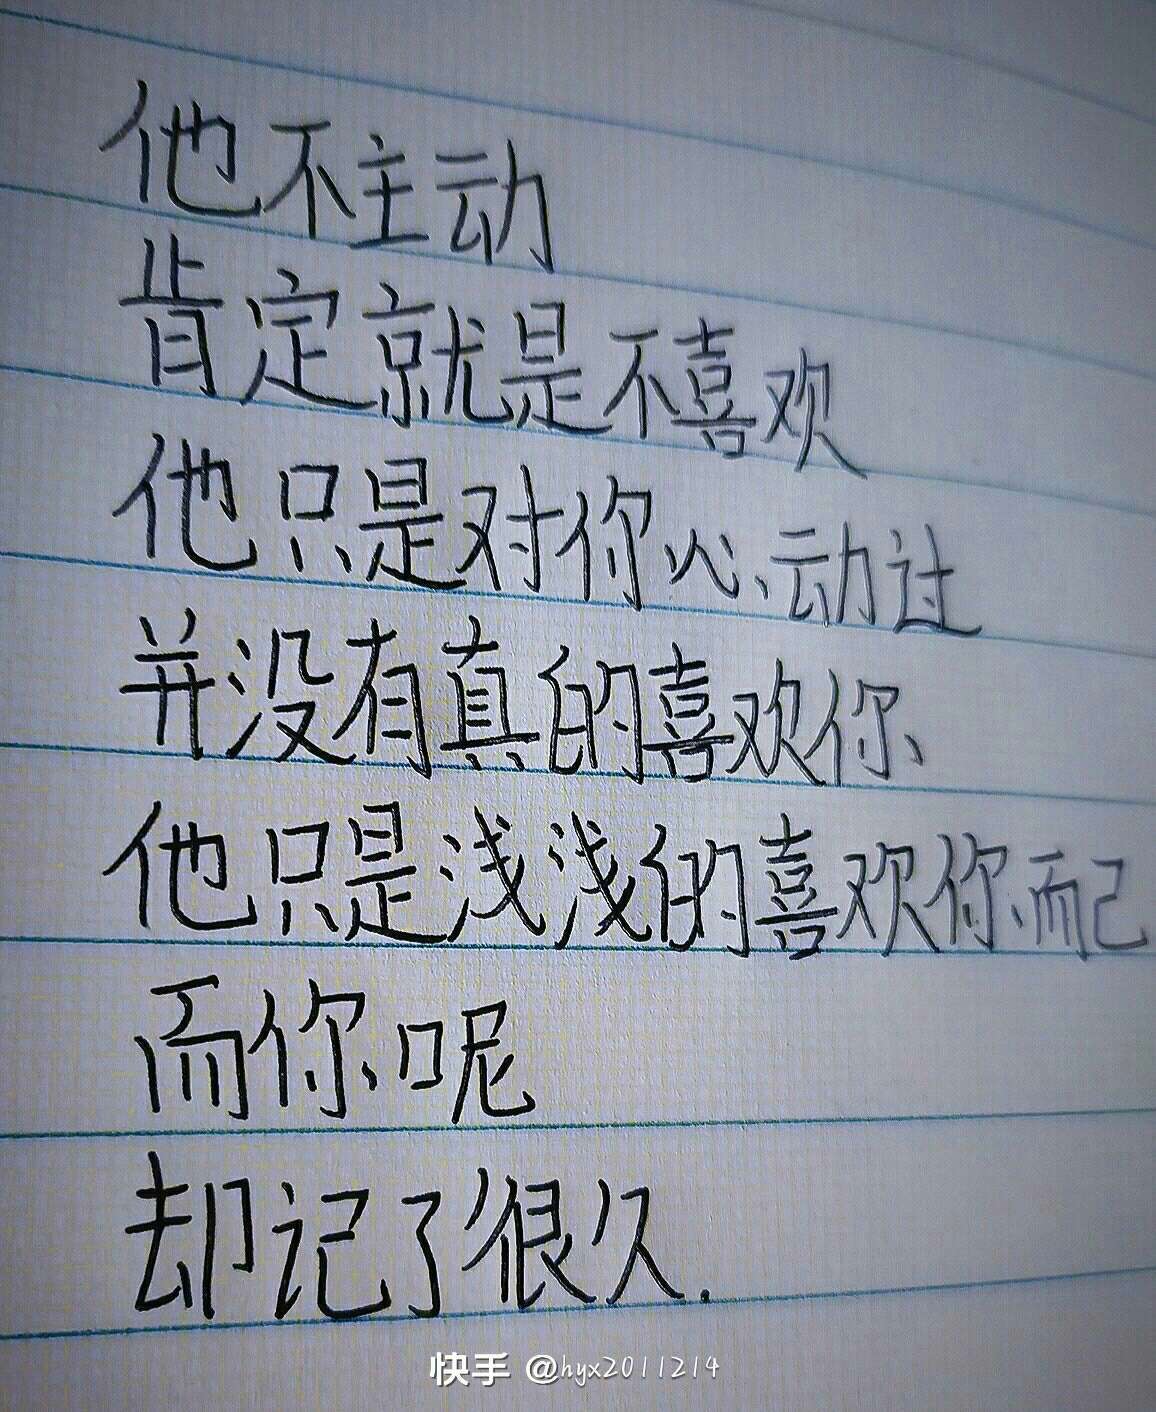 他不主动
肯定就是不喜欢
他只是对你心动过
并没有真的喜欢你
他只是浅浅的喜欢你而已
而你呢
却记了很久.
快手 @hyx2011214